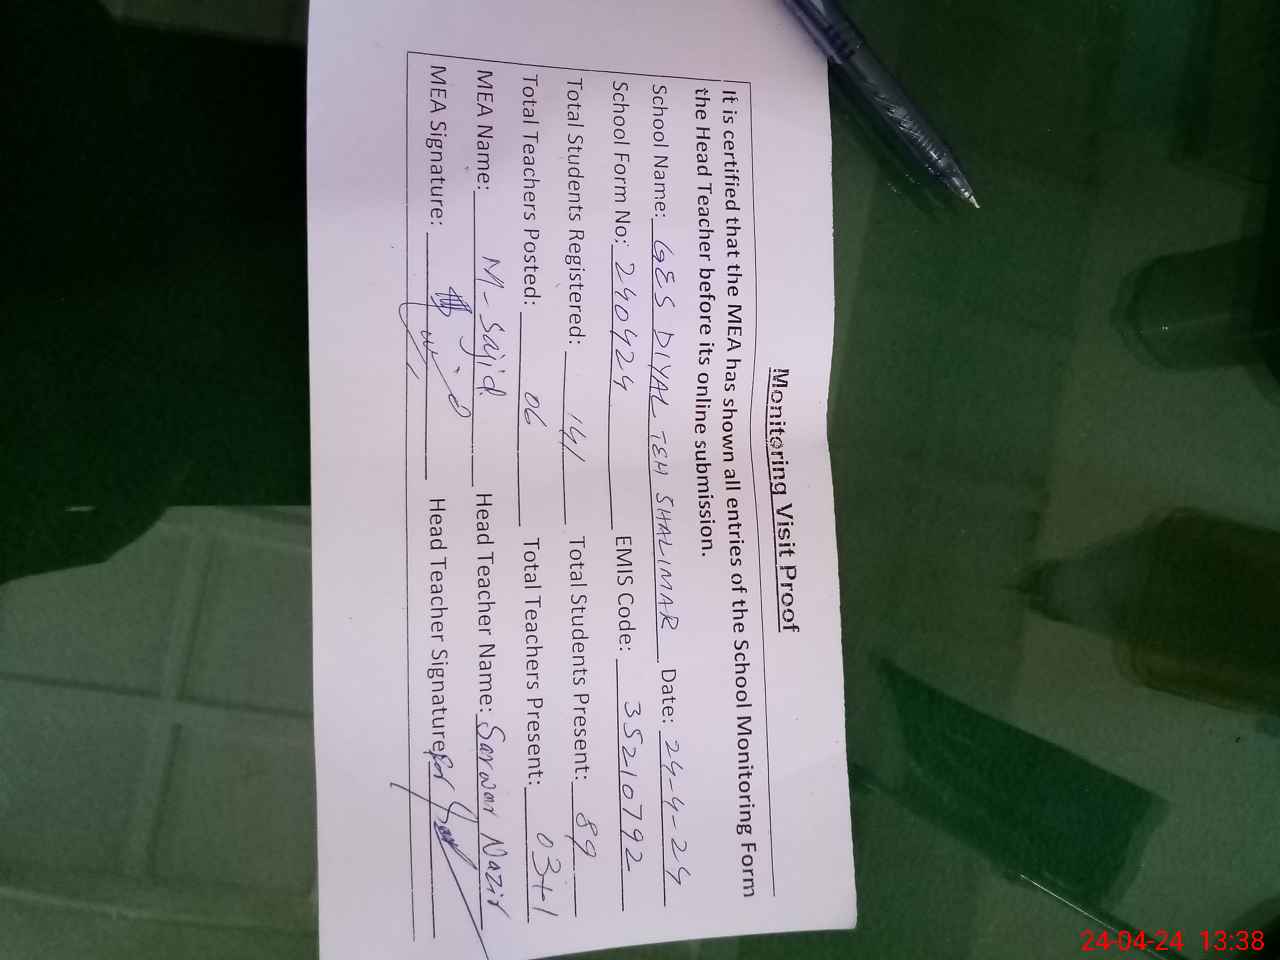 Monitoring Visit Proof
It is certified that the MEA has shown all entries of the School Monitoring Form
the Head Teacher before its online submission.
School Name: GES DIYAL TEH SHALIMAR Date: 24-4-24
School Form No: 240424 EMIS Code: 35210792
Total Students Registered: 141 Total Students Present: 89
Total Teachers Posted: 06 Total Teachers Present: 03+1
MEA Name: M-Sajid Head Teacher Name: Sarwar Nazir
MEA Signature: Head Teacher Signature
24-04-24 13:38